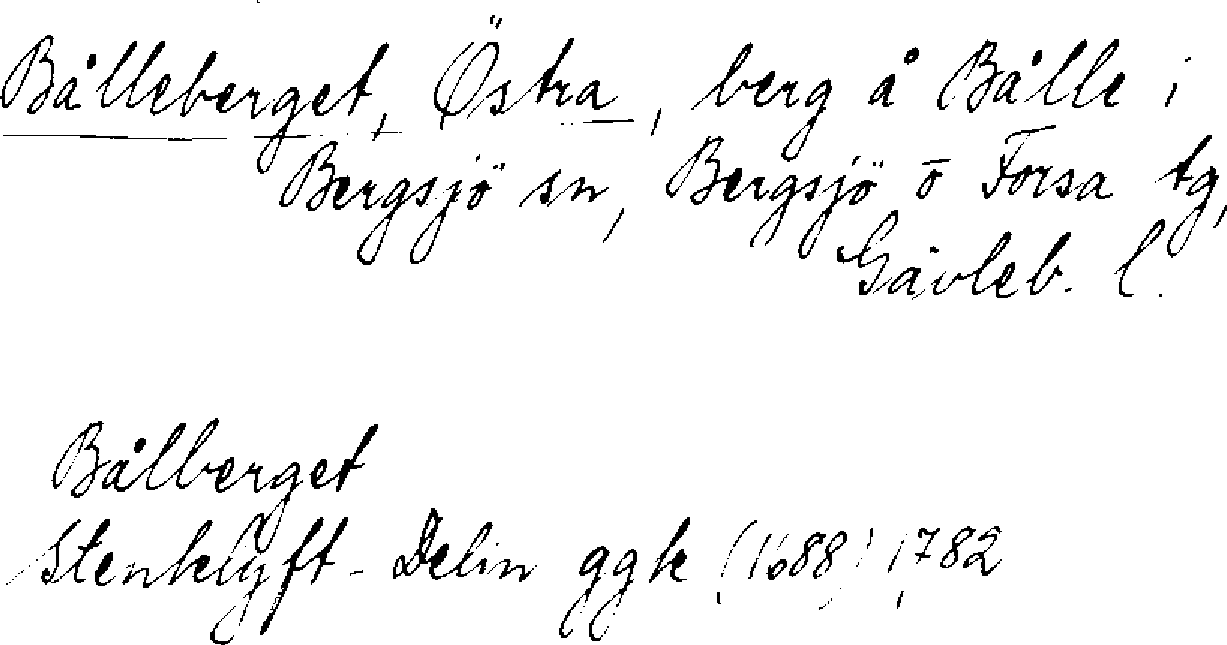 Bålleberget, Östra, berg å Bålle i
Bergsjö sn, Bergsjö o Forsa tg,
Gävleb. l.
Bålberget
Stenklyft-Delin ggk (1688) 1782